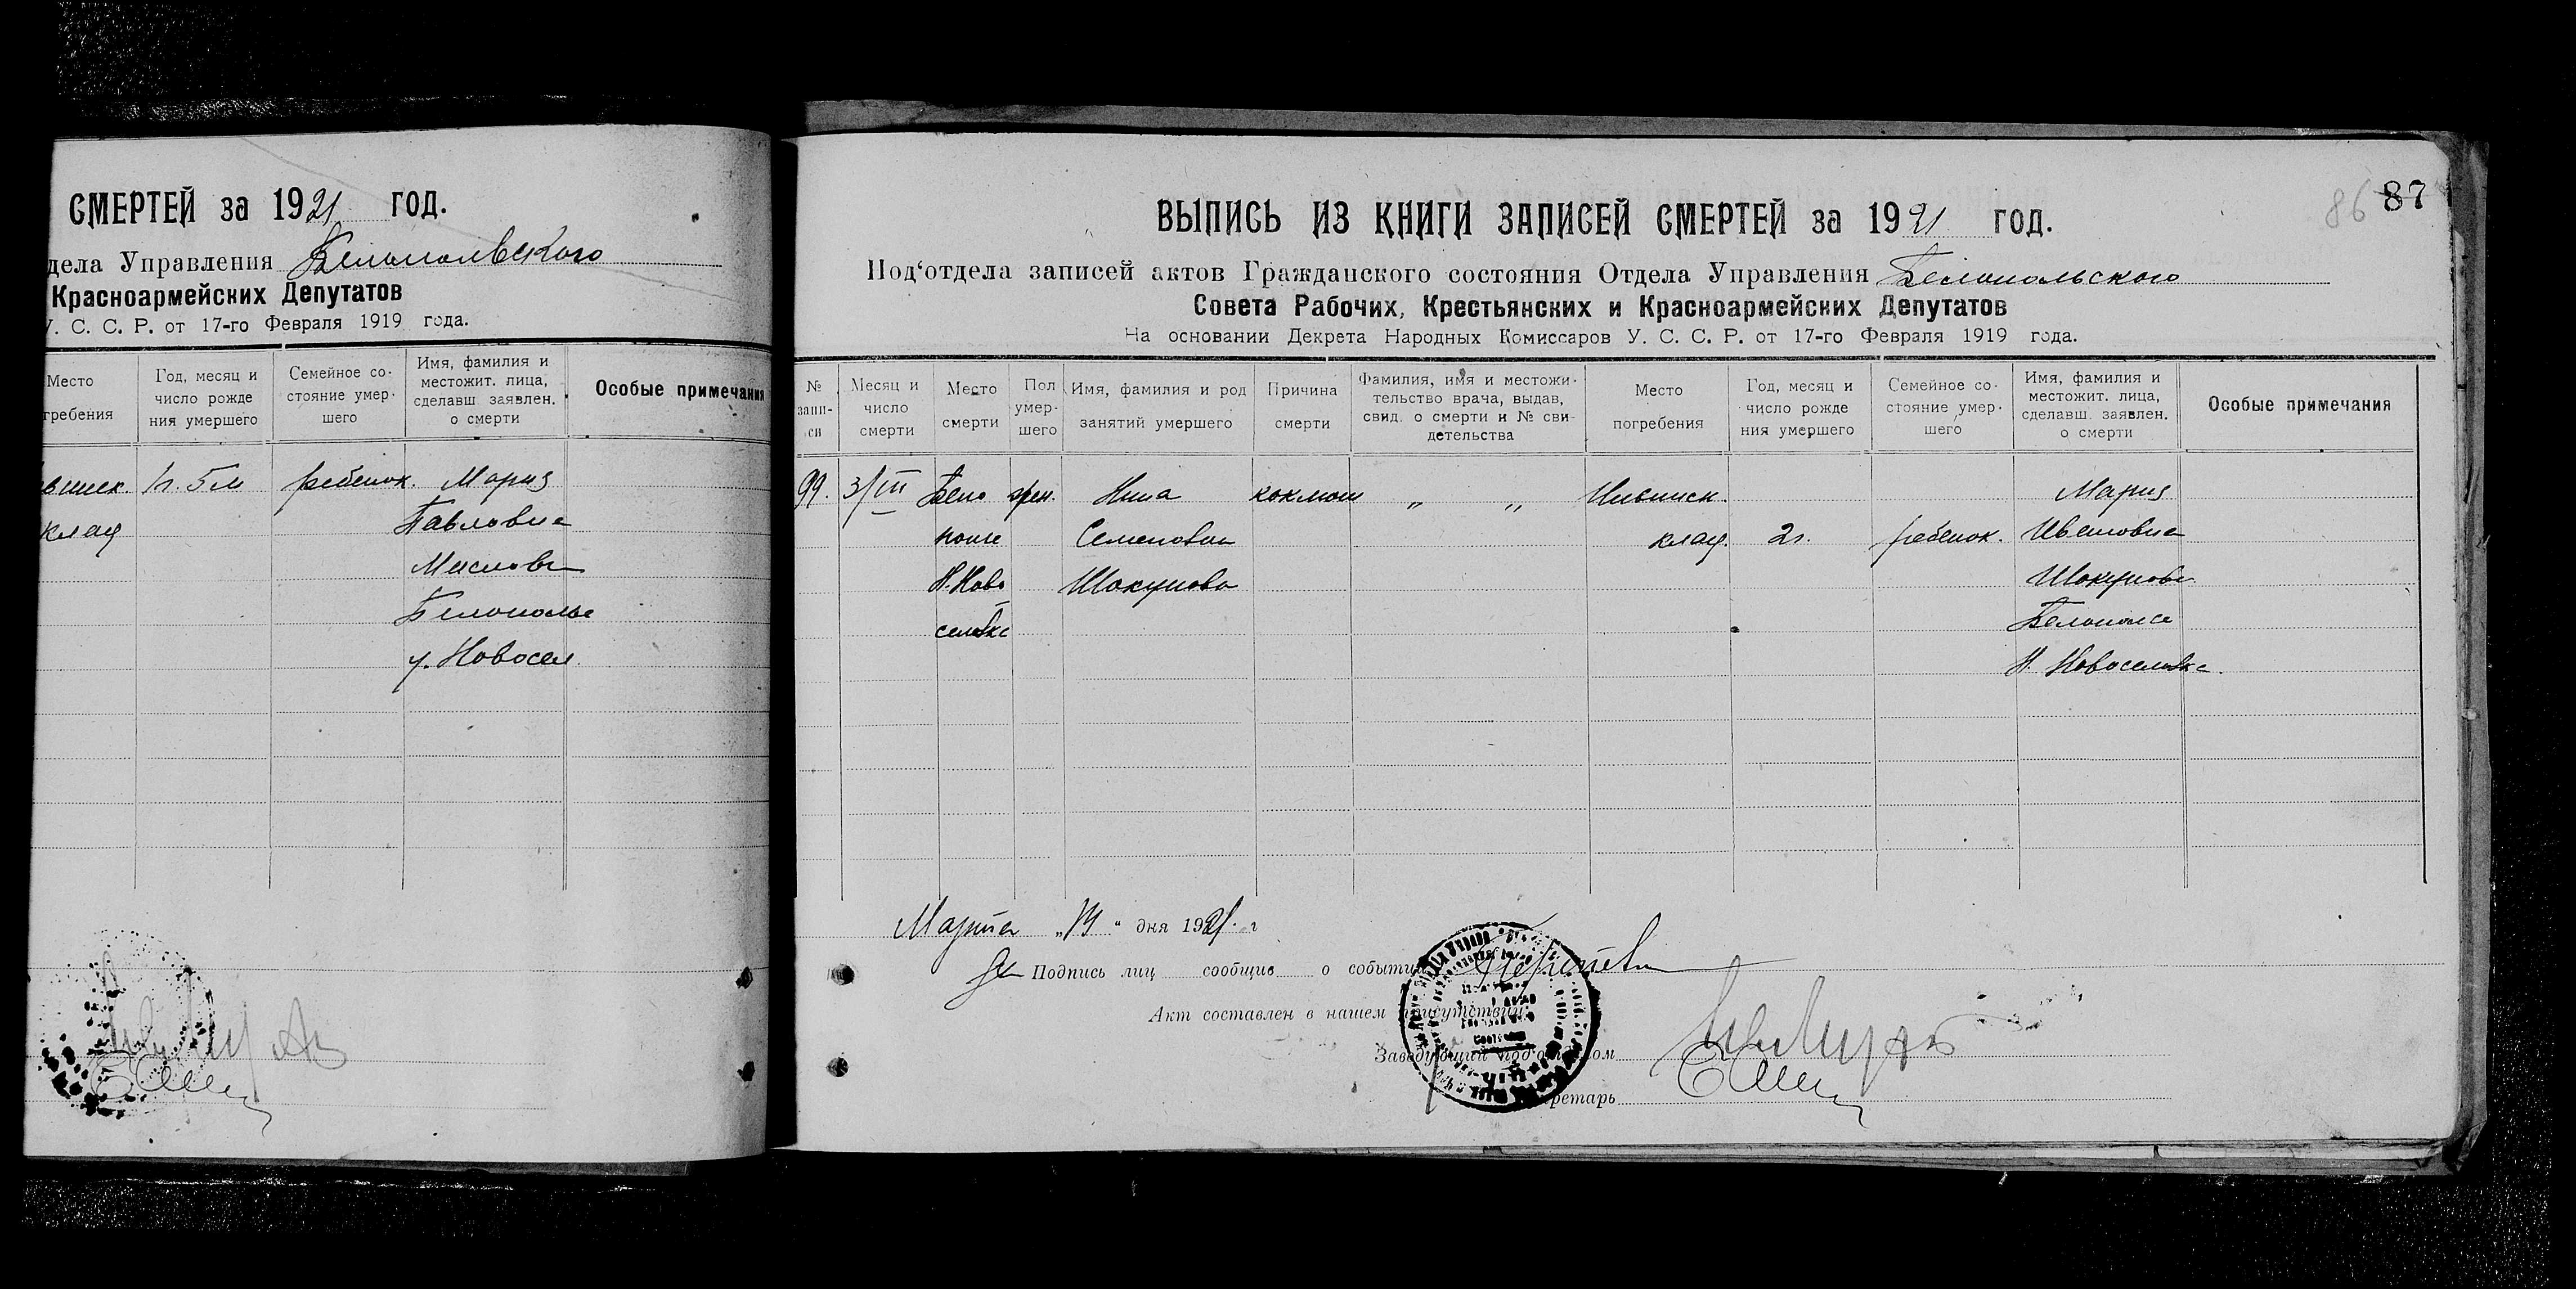 СМЕРТЕЙ за 1921 ГОД.
дела Управления Белопольского
Красноармейских Депутатов
У. С. С. Р. от 17-го Февраля 1919 года.
Место
гребения
Год, месяц и
число рожде
ния умершего
Семейное со-
стояние умер-
шего
Имя, фамилия и
местожит. лица,
сделавш заявлен.
о смерти
Особые примечания
1г. 5м ребенок. Мария
клад Павловна
Маслова
Белополье
у. Новосел.
86 87
ВЫПИСЬ ИЗ КНИГИ ЗАПИСЕЙ СМЕРТЕЙ за 1921 ГОД.
Под‘отдела записей актов Гражданского состояния Отдела Управления Белопольского
Совета Рабочих, Крестьянских и Красноармейских Депутатов
На основании Декрета Народных Комиссаров У. С. С. Р. от 17-го Февраля 1919 года.
№
запи-
си
Месяц и
число
смерти
Место
смерти
Пол
умер-
шего
Имя, фамилия и род
занятий умершего
Причина
смерти
Фамилия, имя и местожи-
тельство врача, выдав,
свид. о смерти и № сви-
детельства
Место
погребения
Год, месяц и
число рожде
ния умершего
Семейное со-
стояние умер-
шего
Имя, фамилия и
местожит. лица,
сделавш. заявлен.
о смерти
Особые примечания
99. 3/III Бело жен. Нина коклюш „ „ Мария
полье Семеновна клад. 2г. ребенок. Ивановна
Н. Ново Шокунова Шокунова
селовке Белополье
Н. Новоселовке.
Марта „ “ дня 1921 г
Подпись лиц сообщив о событии
Акт составлен в нашем присутствии
Заведующий под‘отделом
Секретарь